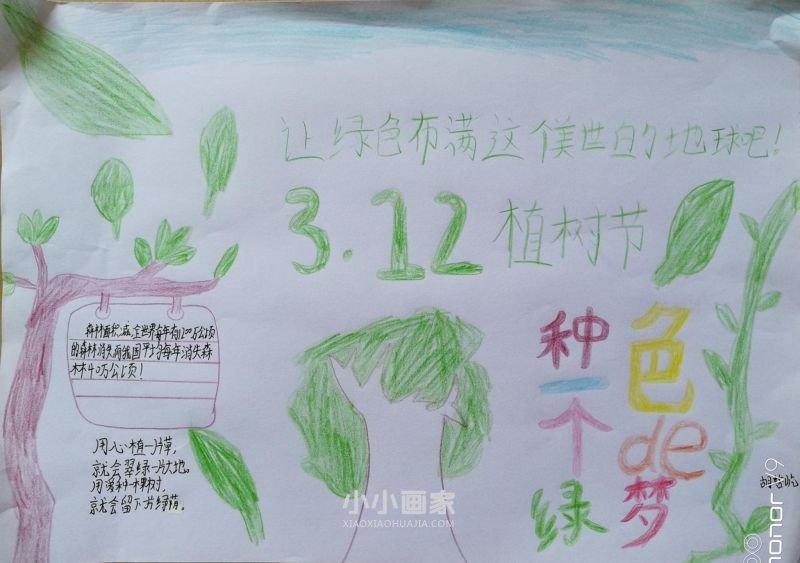 让绿色布满这个美世的地球吧!
3.12 植树节
森林面积减,全世界每年有1200万公顷
的森林消失,而我国平均每年消失森
林40万公顷!
用心植一片草,
就会翠绿一片大地。
用爱种一棵树,
就会留下一方绿荫。
种一个绿
色de梦
小小画家
XIAOXIAOHUAJIA.COM
honor V9